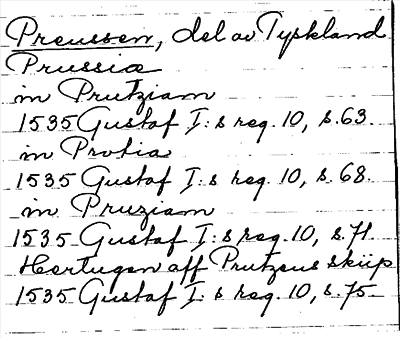 Preussen, del av Tyskland
Prussia
in Prutziam
1535 Gustaf I:s reg. 10, s. 63.
in Protia
1535 Gustaf I:s reg. 10, s. 68.
in Pruziam
1535 Gustaf I:s reg. 10, s. 71
Hertugen aff Prutzens skiip
1535 Gustaf I:s reg. 10, s. 75